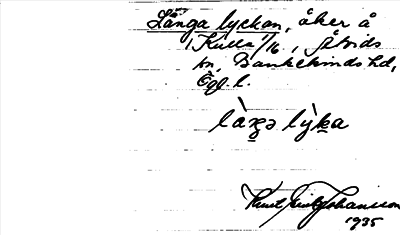 Långa lyckan, åker å
Kulla 1/16, Åtvids
sn, Bankekinds hd,
Ögl.
làŋ̱ə lỳḵa
Knut Johansson
1935